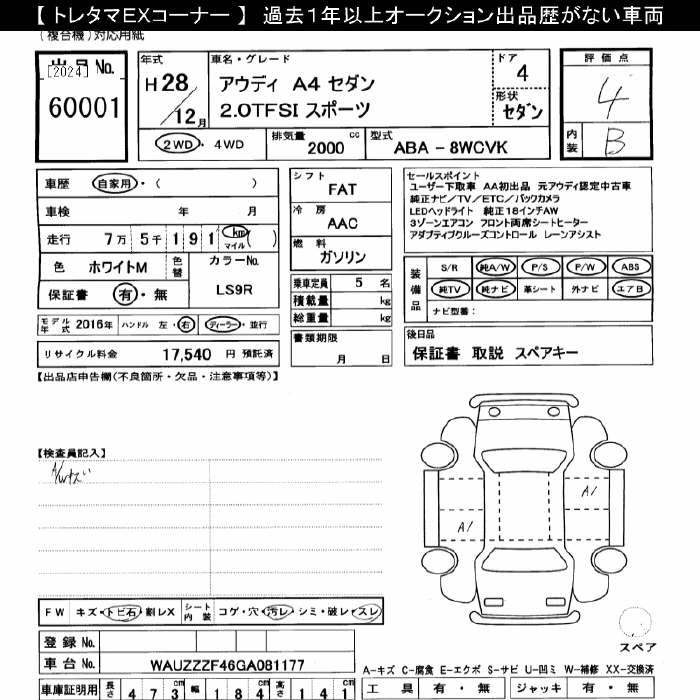 【 トレタマEXコーナー 】 過去１年以上オークション出品歴がない車両
(複合機)対応用紙
出品No.
[2024]
60001
年式
H 28
12月
車名・グレード
アウディ A4 セダン
2.0TFSI スポーツ
ドア
4
形状
セダン
評価点
4
内装
B
2WD・4WD
排気量
2000 cc
型式
ABA - 8WCVK
車歴
自家用・( )
車検
年 月
走行
7万 5千 1 9 1 km マイル ( )
色
ホワイトM
色替
カラーNo.
LS9R
保証書
有・無
シフト
FAT
冷房
AAC
燃料
ガソリン
乗車定員 5 名
積載量 kg
総重量 kg
書類期限
月 日
セールスポイント
ユーザー下取車 AA初出品 元アウディ認定中古車
純正ナビ/TV/ETC/バックカメラ
LEDヘッドライト 純正18インチAW
3ゾーンエアコン フロント両席シートヒーター
アダプティブクルーズコントロール レーンアシスト
装備品
S/R 純A/W P/S P/W ABS
純TV 純ナビ 革シート 外ナビ エアB
ナビ型番:
モデル年式 2016年 ハンドル 左・右 ディーラー・並行
リサイクル料金 17,540 円 預託済
後日品
保証書 取説 スペアキー
【出品店申告欄(不良箇所・欠品・注意事項等)】
【検査員記入】
A/Wキズ
A1
A1
FW キズ・トビ石・割レX シート内装 コゲ・穴・汚レ・シミ・破レ・スレ
スペア
登録No.
車台No. WAUZZZF46GA081177
A-キズ C-腐食 E-エクボ S-サビ U-凹ミ W-補修 XX-交換済
車庫証明用 長さ 473cm 幅 184cm 高さ 141cm
工具 有・無 ジャッキ 有・無